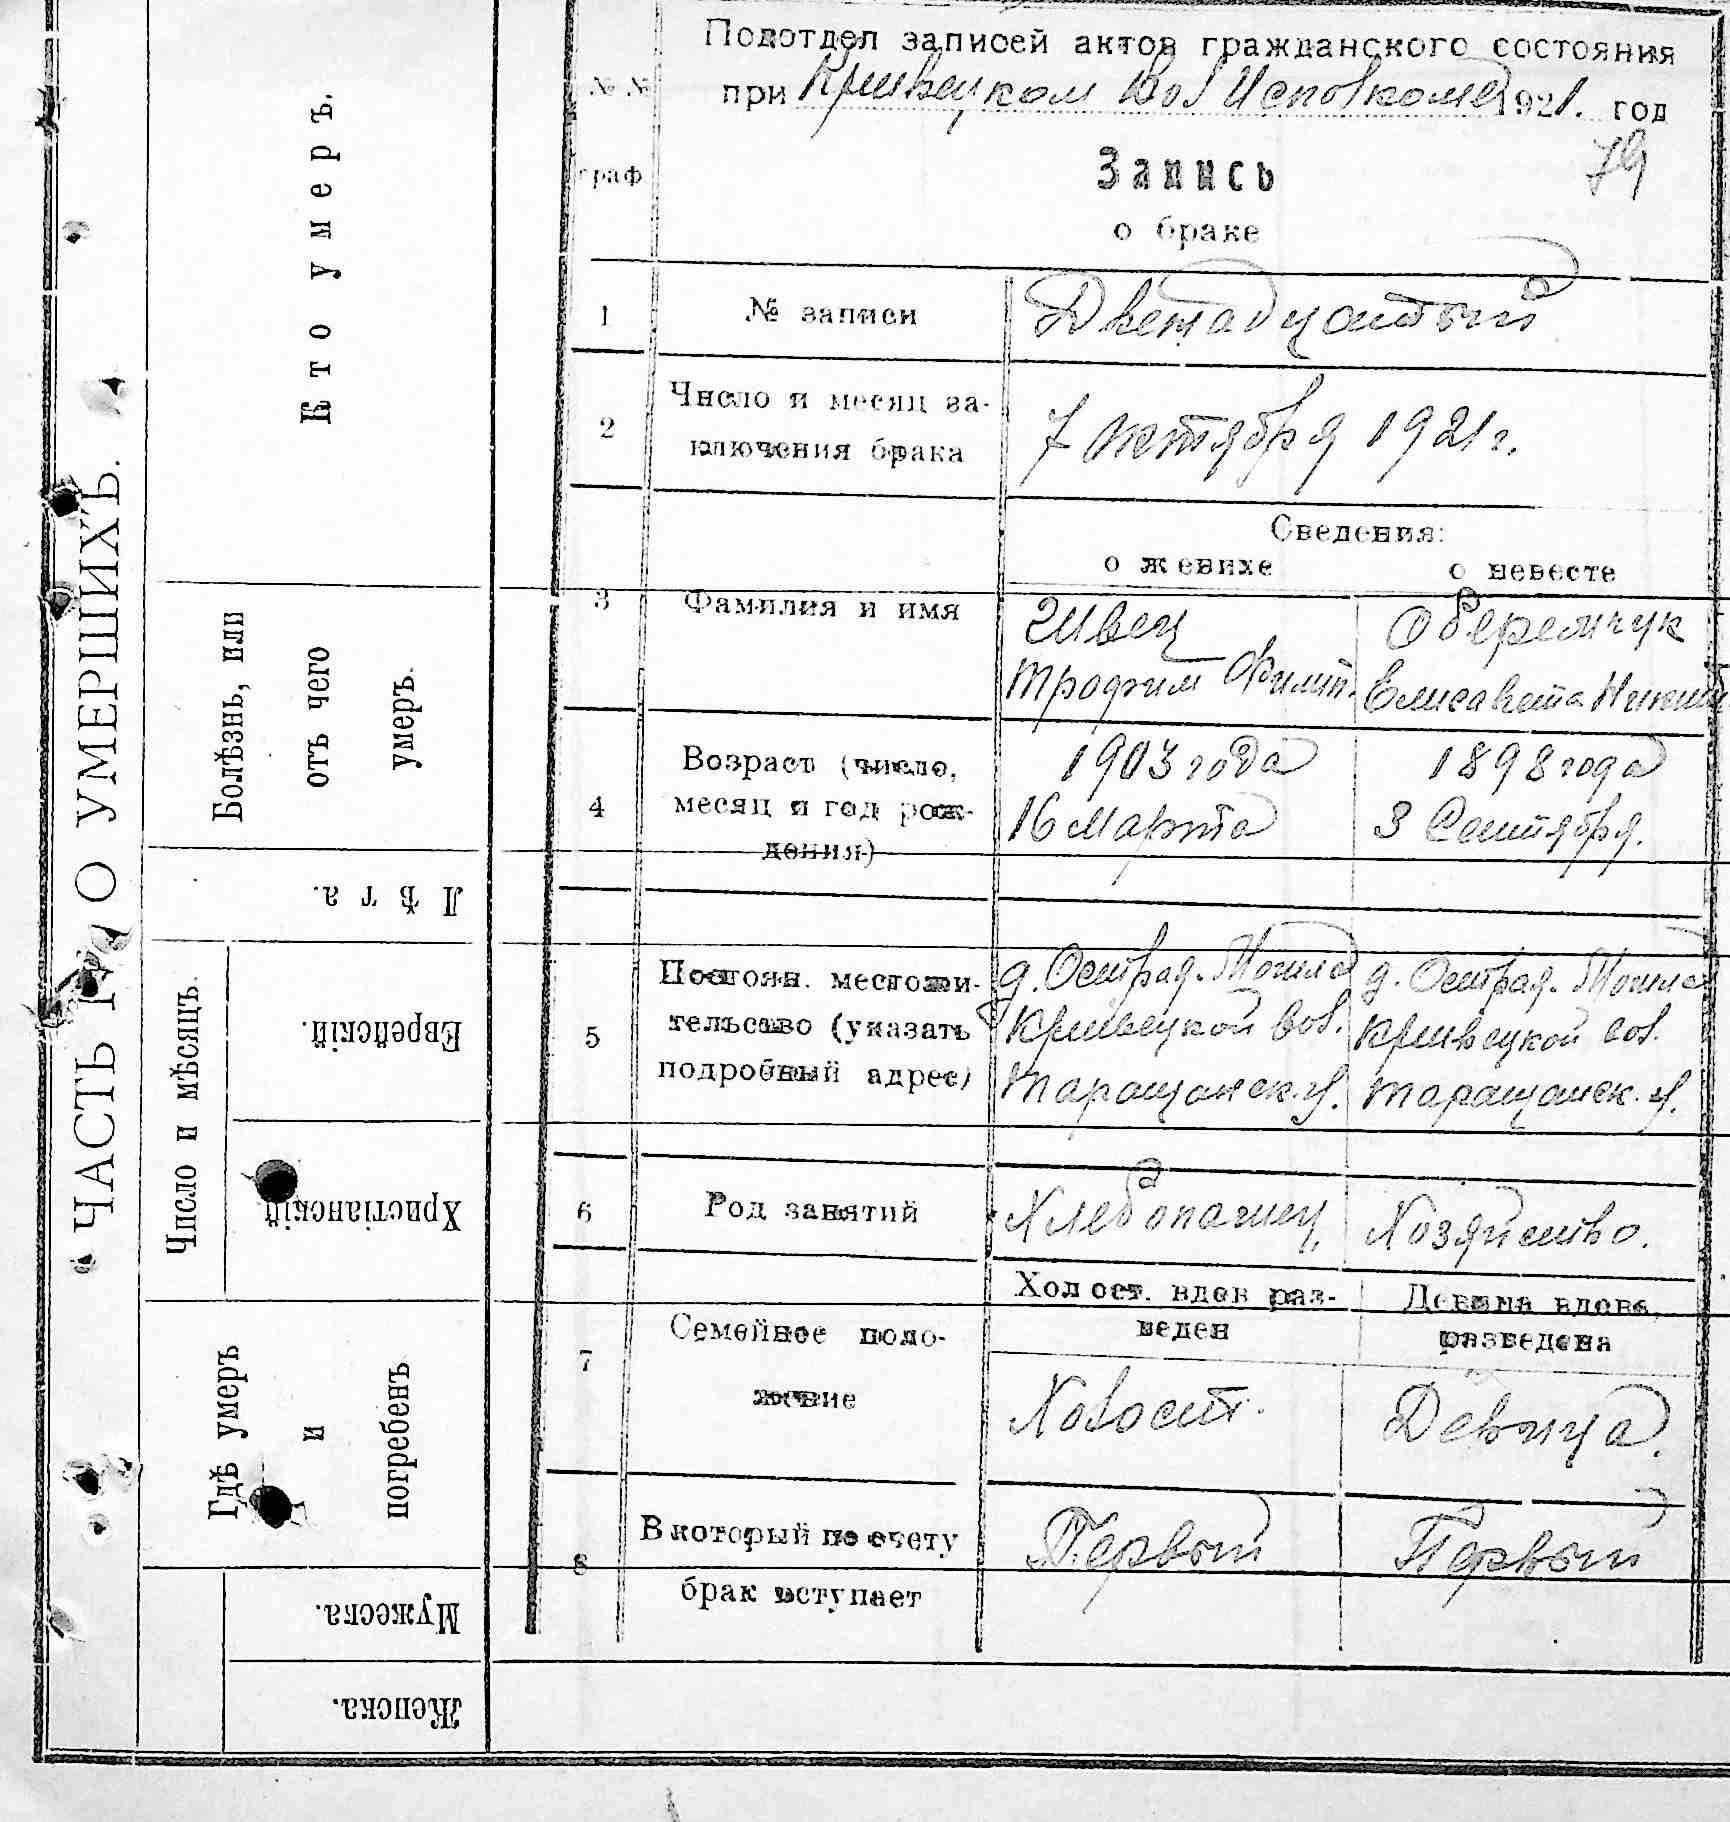 ЧАСТЬ О УМЕРШИХЪ.
Кто умеръ.
Болѣзнь, или
отъ чего
умеръ.
Лѣта.
Число и мѣсяцъ.
Еврейскій.
Христіанскій
Гдѣ умеръ
и
погребенъ
Мужеска.
Женска.
Подотдел записей актов гражданского состояния
при Кривецком Вол Исполкоме 1921. год
79
№ №
граф
Запись
о браке
1 № записи Двенадцатый
2 Число и месяц за-
ключения брака
7 октября 1921 г.
Сведения:
о женихе о невесте
3 Фамилия и имя
Швец
Трофим Филип.
Оберемчук
Елисавета Никит
4 Возраст (число,
месяц и год рож-
дения)
1903 года
16 Марта
1898 года
3 Сентября.
5 Постоян. местожи-
тельство (указать
подробный адрес)
д. Острая-Могила
Кривецкой вол.
Таращанск. у.
д. Острая-Могила
Кривецкой вол.
Таращанск. у.
6 Род занятий
Хлебопашец,
Хозяйство.
7 Семейное поло-
жение
Холост. вдов раз-
веден
Девица вдова,
разведена
Холост.
Девица.
8 В который по счету
брак вступает
Первый
Первый